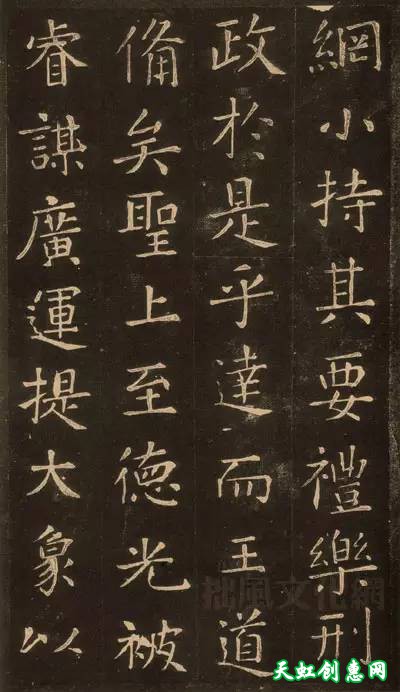 網小持其要禮樂刑
政於是乎達而王道
備矣聖上至德光被
睿謀廣運提大象以
拙風文化網
天虹创惠网